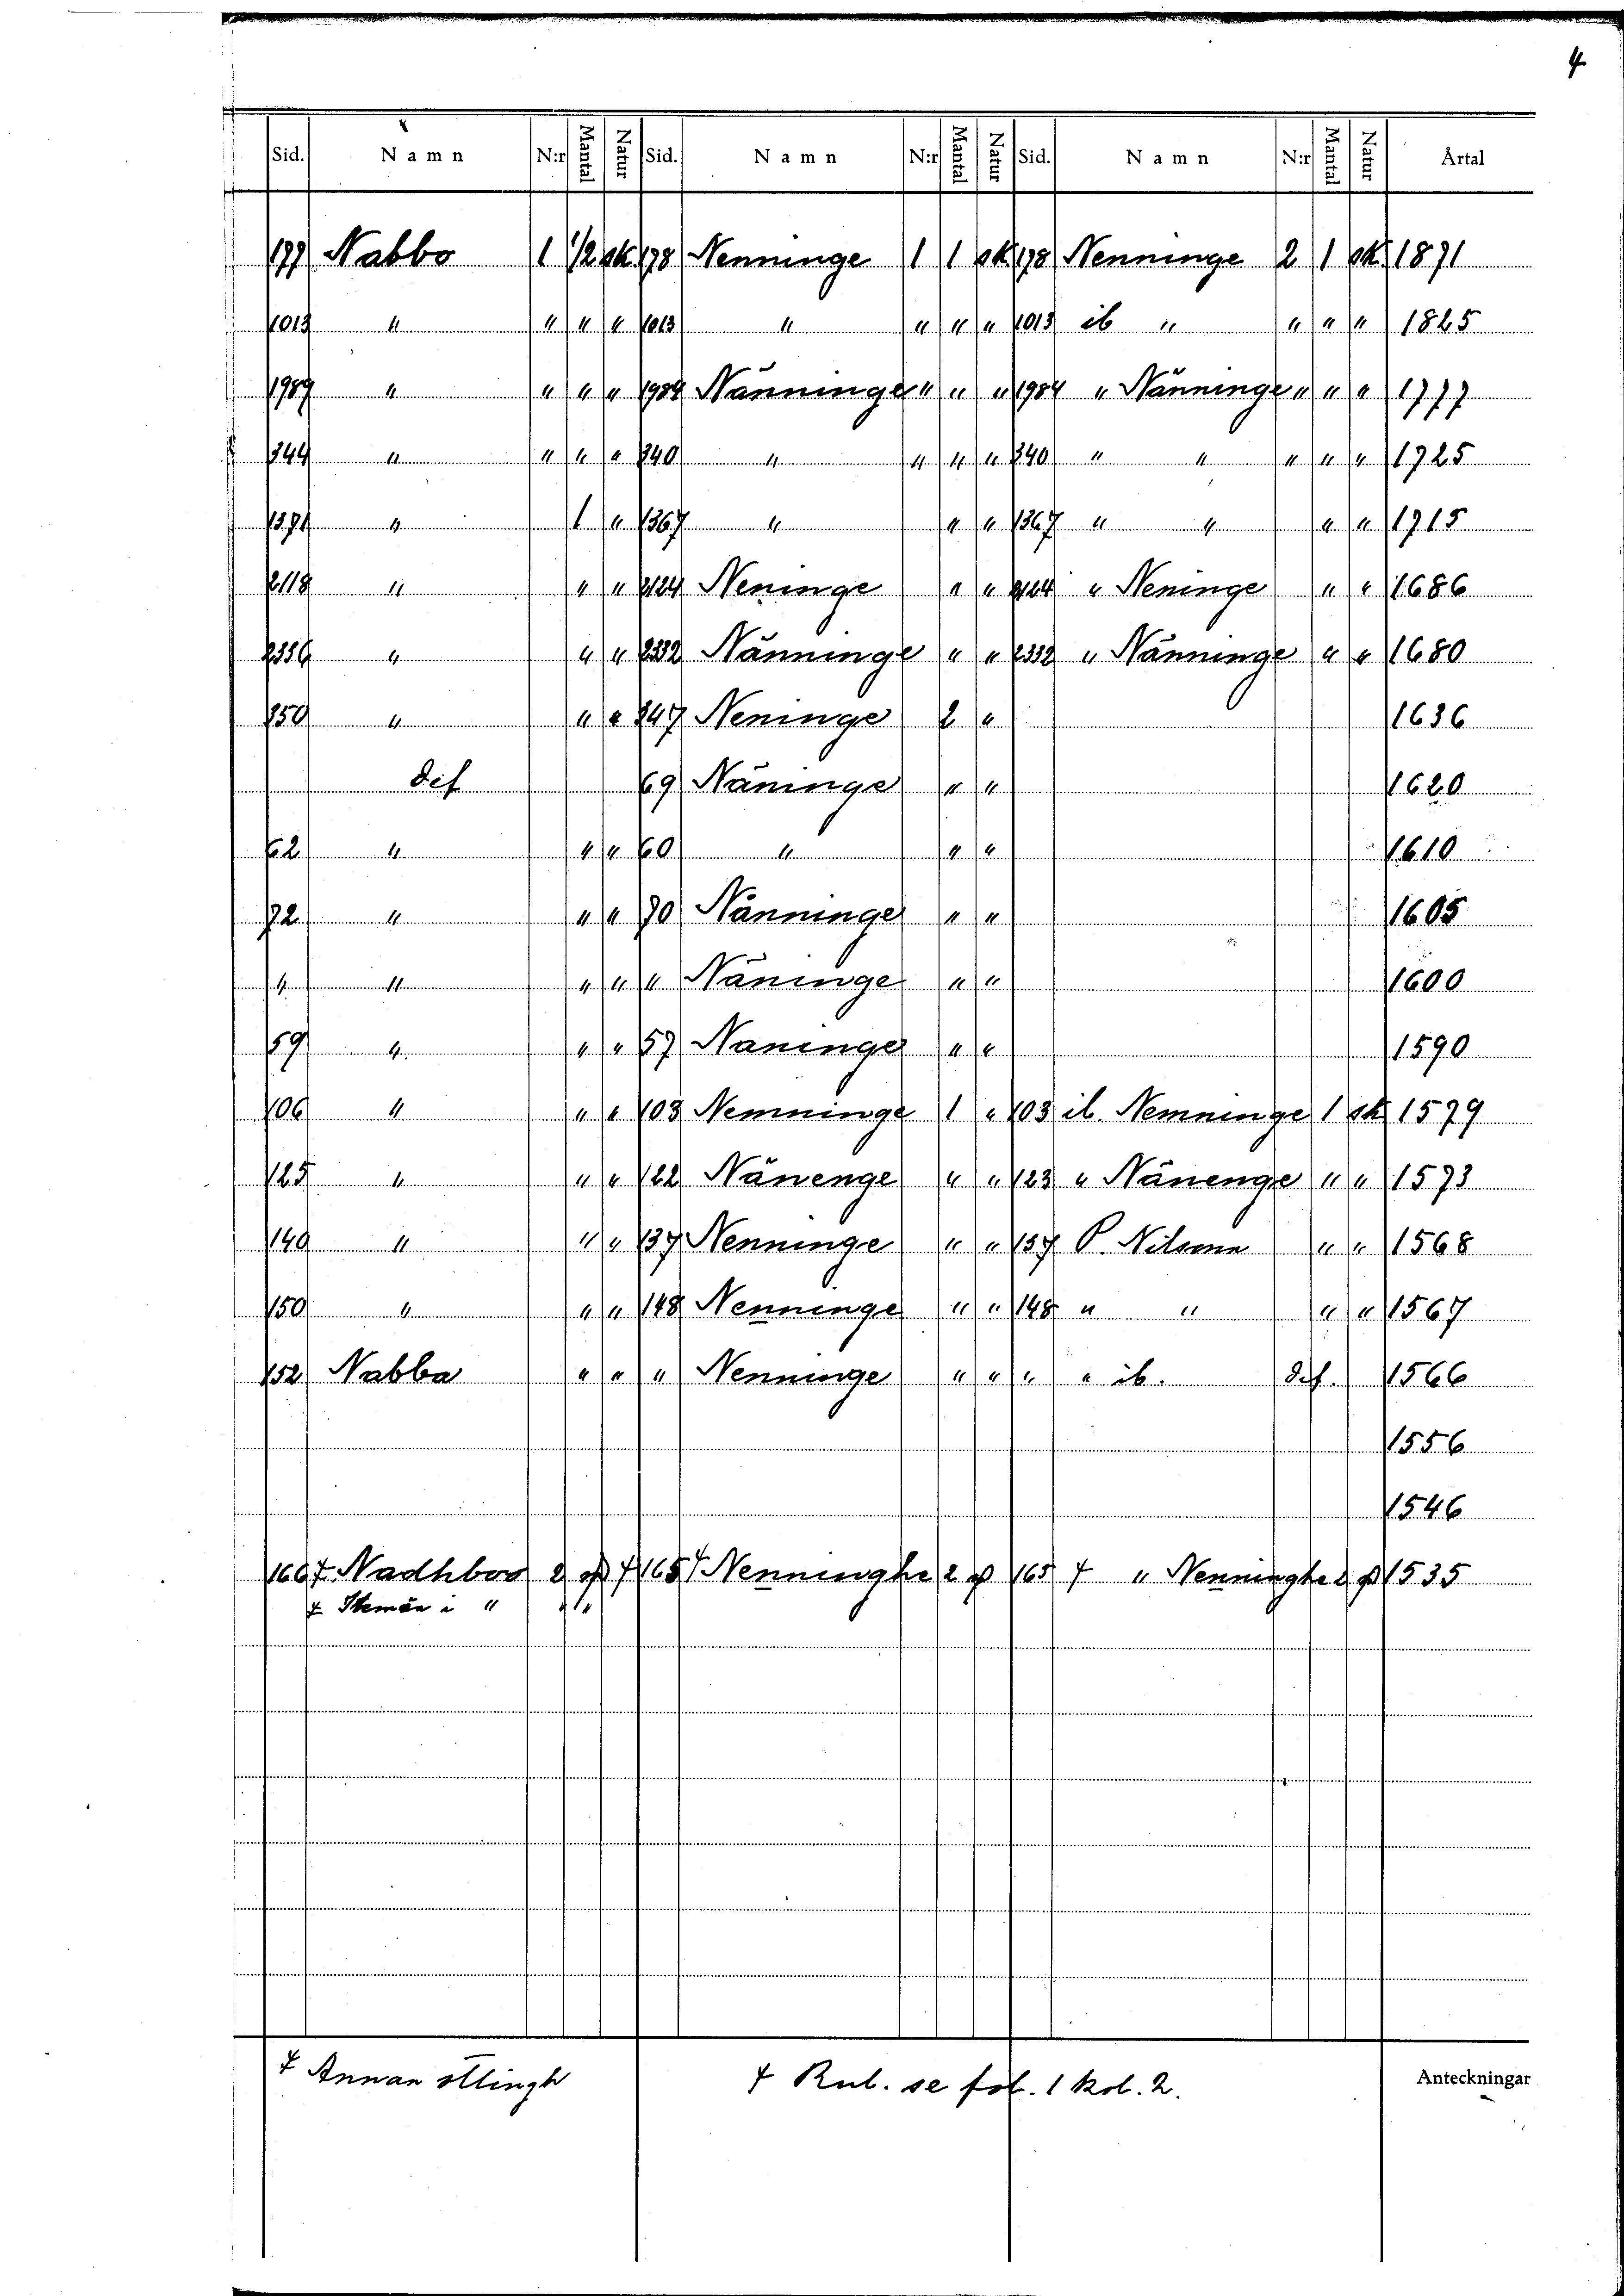 4
Sid. Namn N:r Mantal Natur Sid. Namn N:r Mantal Natur Sid. Namn N:r Mantal Natur Årtal
177 Nabbo 1 1/2 sk. 178 Nenninge 1 1 sk 178 Nenninge 2 1 sk. 1871
1013 " " " " 1013 " " " " 1013 ib " " " " 1825
1989 " " " " 1984 Nänninge " " " 1984 " Nänninge " " " 1777
344 " " " " 340 " " " " 340 " " " " " 1725
1371 " 1 " 1367 " " " 1367 " " " " 1715
2118 " " " 2124 Neninge " " 2124 " Neninge " " 1686
2336 " " " 2332 Nänninge " " 2332 " Nänninge " " 1680
350 " " " 347 Neninge 2 " 1636
def 69 Näninge " " 1620
62 " " " 60 " " " 1610
72 " " " 70 Nänninge " " 1605
" " " " " Näninge " " 1600
59 " " " 57 Naninge " " 1590
106 " " " 103 Nemninge 1 " 103 ib. Nemninge 1 sk 1579
125 " " " 122 Nänenge " " 123 " Nänenge " " 1573
140 " " " 137 Nenninge " " 137 P. Nilsson " " 1568
150 " " " 148 Nenninge " " 148 " " " " 1567
152 Nabba " " " Nenninge " " " " ib. def. 1566
1556
1546
166 ⨍ Nadhboo 2 p ⨍ 165 ⨍ Nenninghe 2 p 165 ⨍ " Nenninghe 2 p 1535
i " " "
Annan ottingh Rub. se fol. 1 kol. 2. Anteckningar